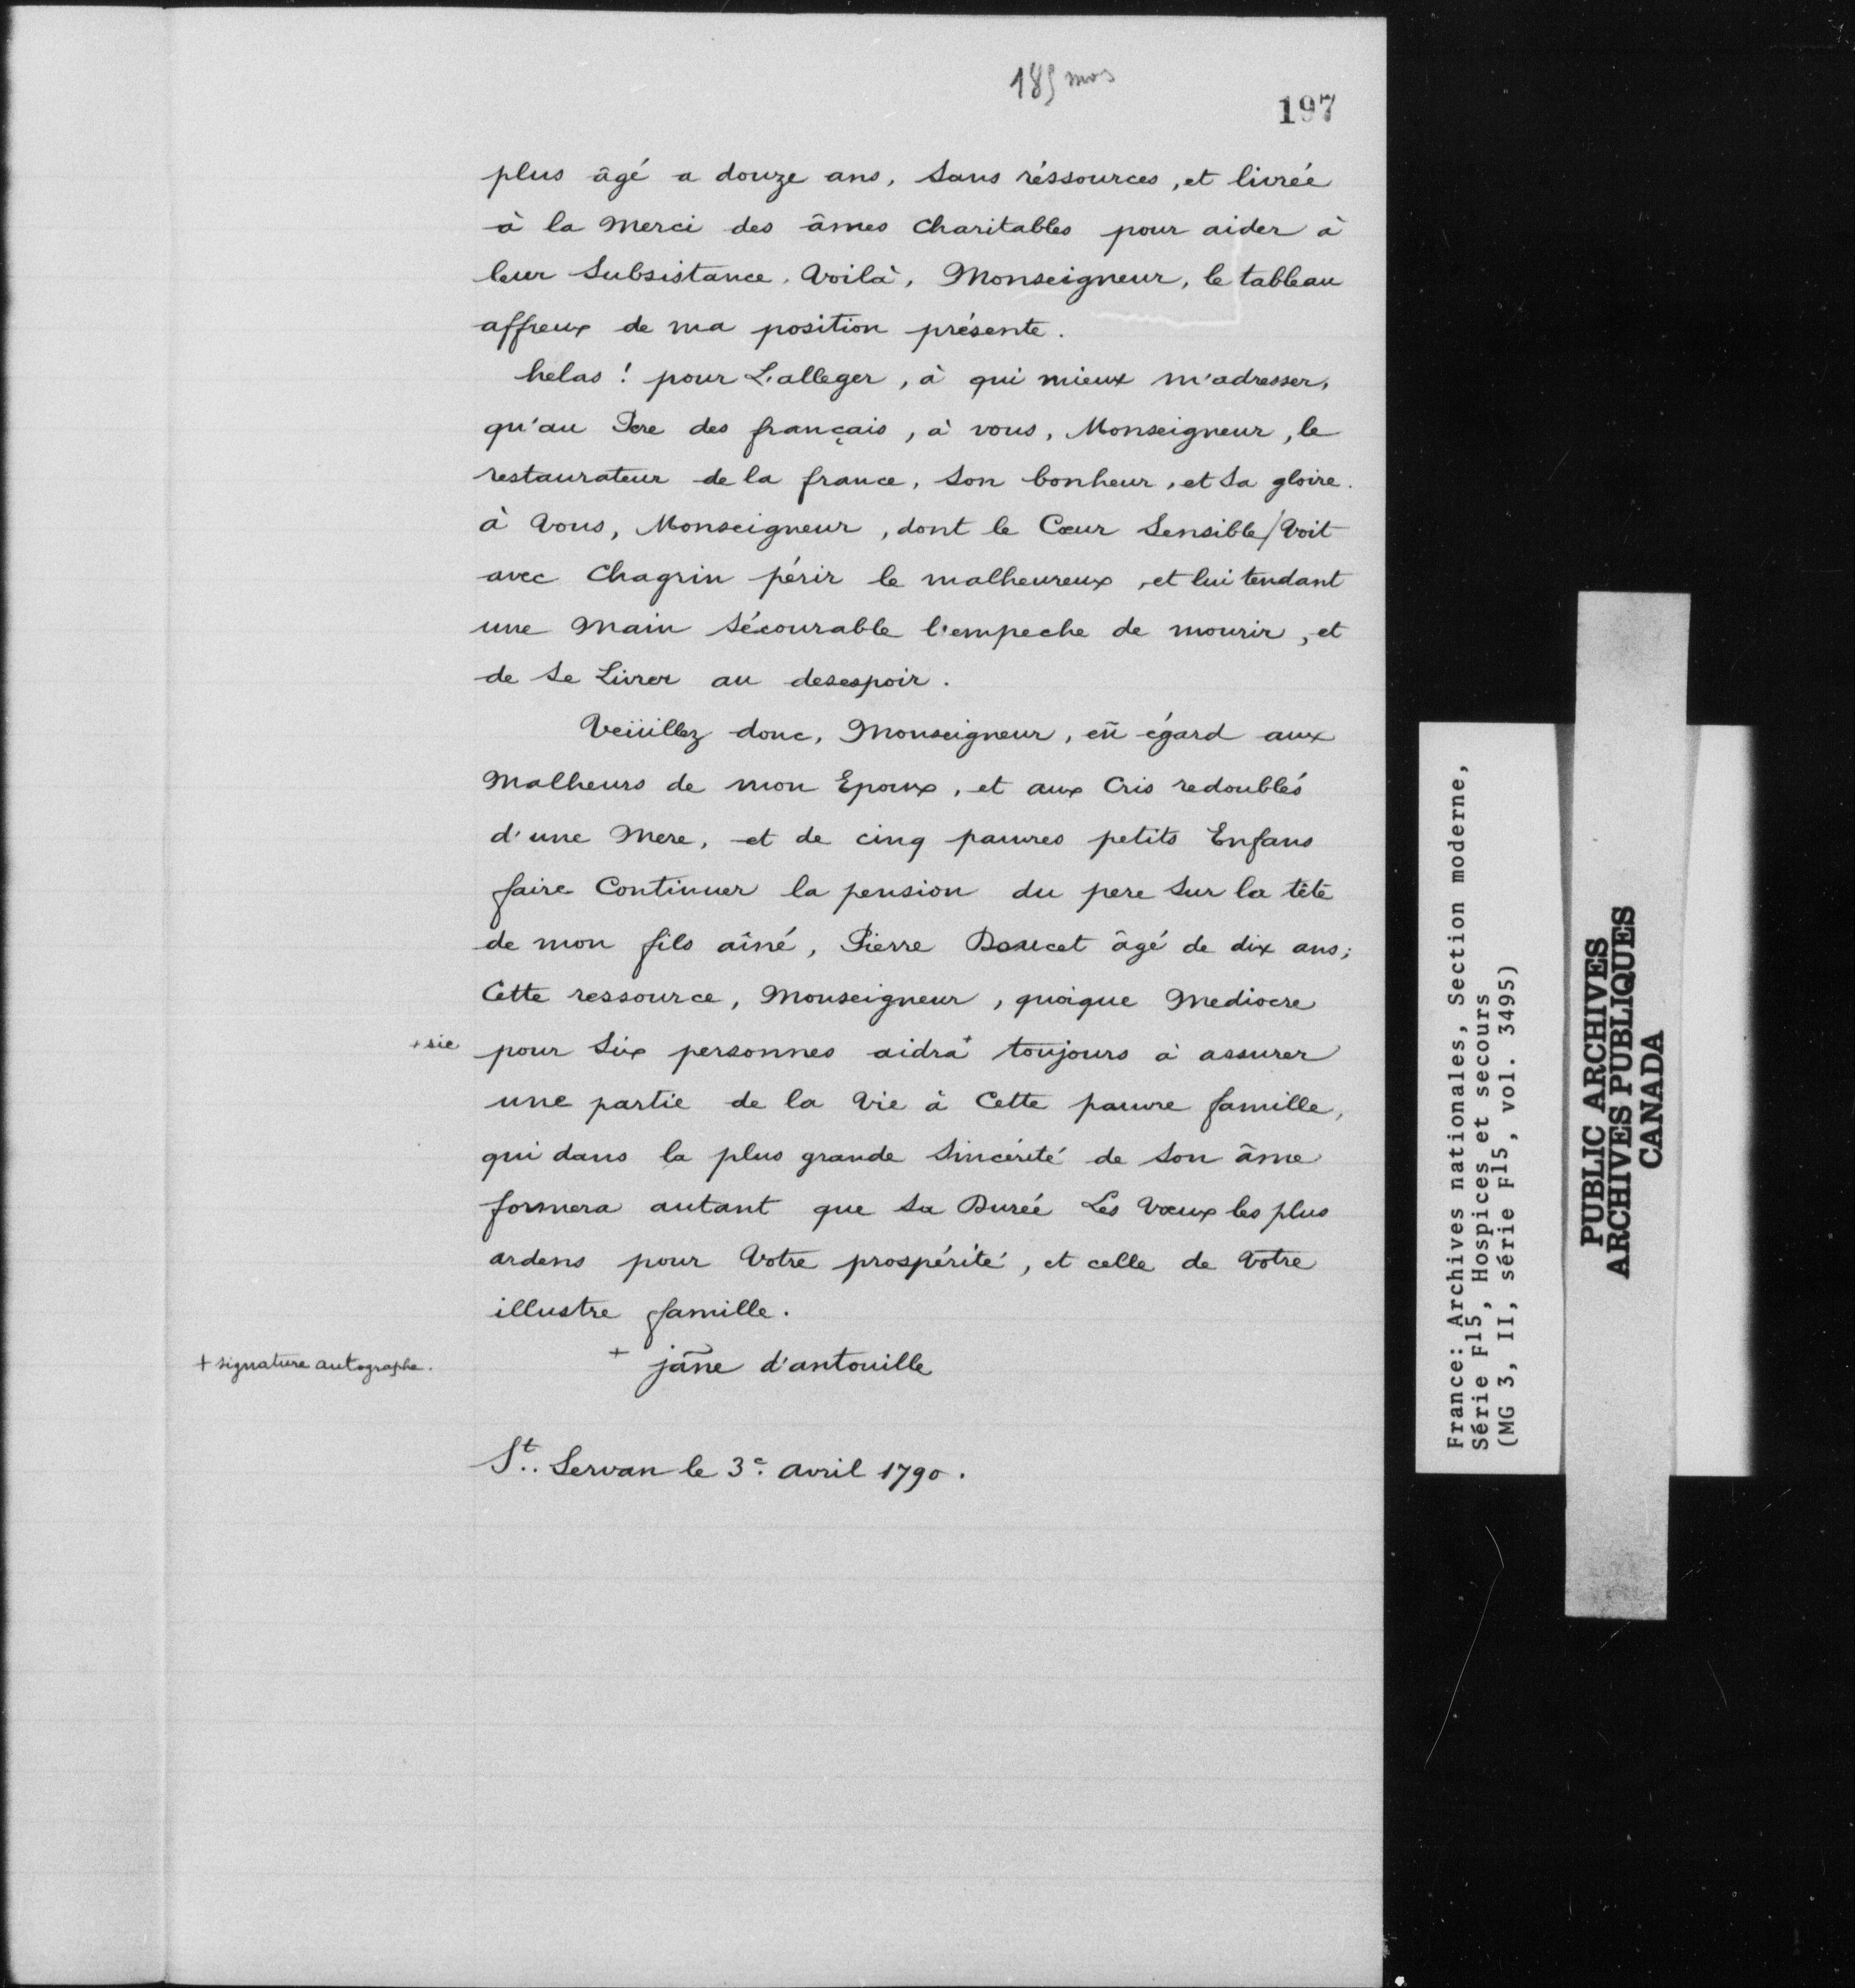 197
plus âgé a douze ans, sans réssources, et livrée
à la Merci des âmes Charitables pour aider à
leur Subsistance. Voilà, Monseigneur, le tableau
affreux de ma position présente.
helas ! pour L'alleger, à qui mieux m'adresser,
qu'au Pere des français, à vous, Monseigneur, le
restaurateur de la france, son bonheur, et sa gloire.
à Vous, Monseigneur, dont le Cœur Sensible/Voit
avec Chagrin périr le malheureux, et lui tendant
une Main sécourable l'empeche de mourir, et
de se Livrer au desespoir.
Veüillez donc, Monseigneur, eû égard aux
Malheurs de mon Epoux, et aux Cris redoublés
d'une Mere, et de cinq pauvres petits Enfans
faire Continuer la pension du pere sur la tête
de mon fils aîné, Pierre Doucet âgé de dix ans;
Cette ressource, Monseigneur, quoique Mediocre
+ sic pour Six personnes aidra+ toujours à assurer
une partie de la Vie à Cette pauvre famille,
qui dans la plus grande Sincérité de son âme
formera autant que sa Durée Les Vœux les plus
ardens pour Votre prospérité, et celle de Votre
illustre famille.
+ signature autographe. + jãne d'antouille
St. Servan le 3e. avril 1790.
France: Archives nationales, Section moderne,
Série F15, Hospices et secours
(MG 3, II, série F15, vol. 3495)
PUBLIC ARCHIVES
ARCHIVES PUBLIQUES
CANADA